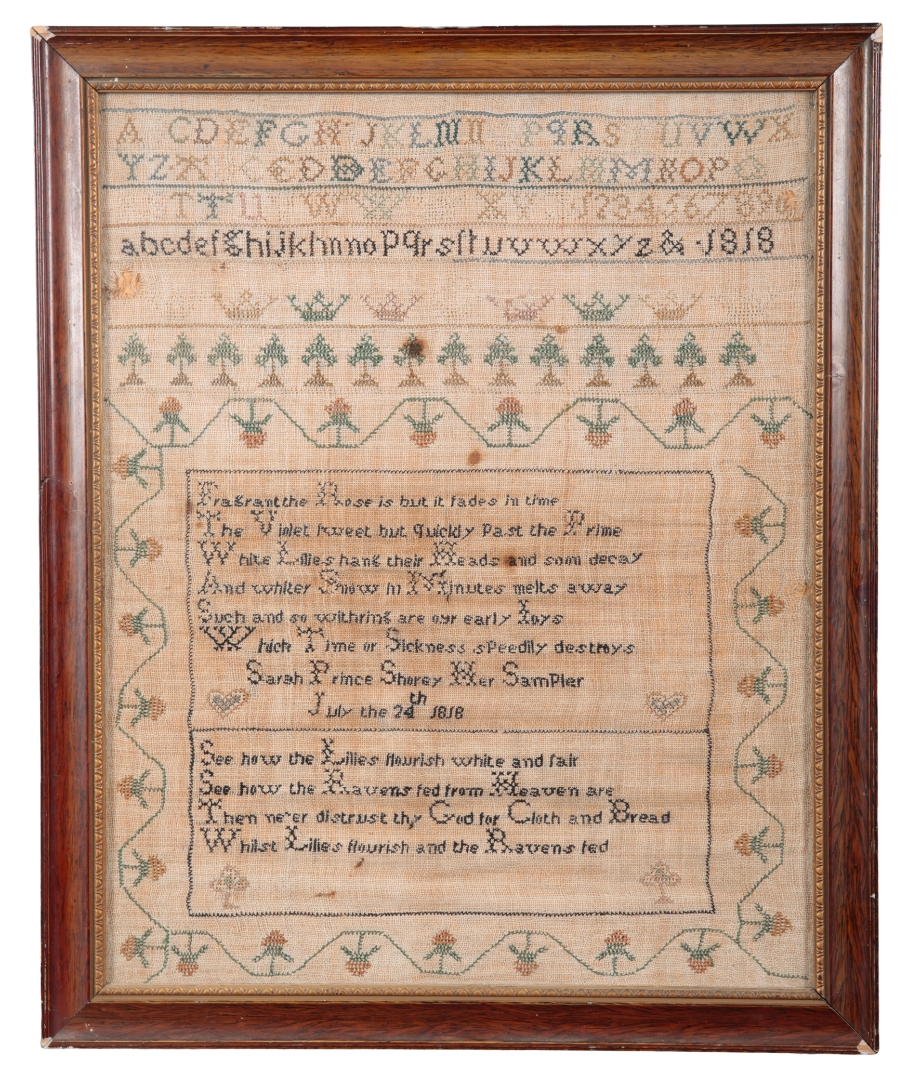 A CDEFGH IJKLMN PQRS UVWX
YZ CDDEFGHIJKLMMNOPQ
TTU W XY 1234567890
abcdefghijklmnopqrsſtuvwxyz& 1818
Fragrant the Rose is but it fades in time
The Violet sweet but quickly Past the Prime
White Lillies hang their Heads and soon decay
And whiter Snow in Minutes melts away
Such and so withring are our early Ioys
Which Time or Sickness sPeedily destroys
Sarah Prince Shorey Her SamPler
July the 24th 1818
See how the Lilies flourish white and fair
See how the Ravens fed from Heaven are
Then never distrust thy God for Cloth and Bread
Whilst Lilies flourish and the Ravens fed